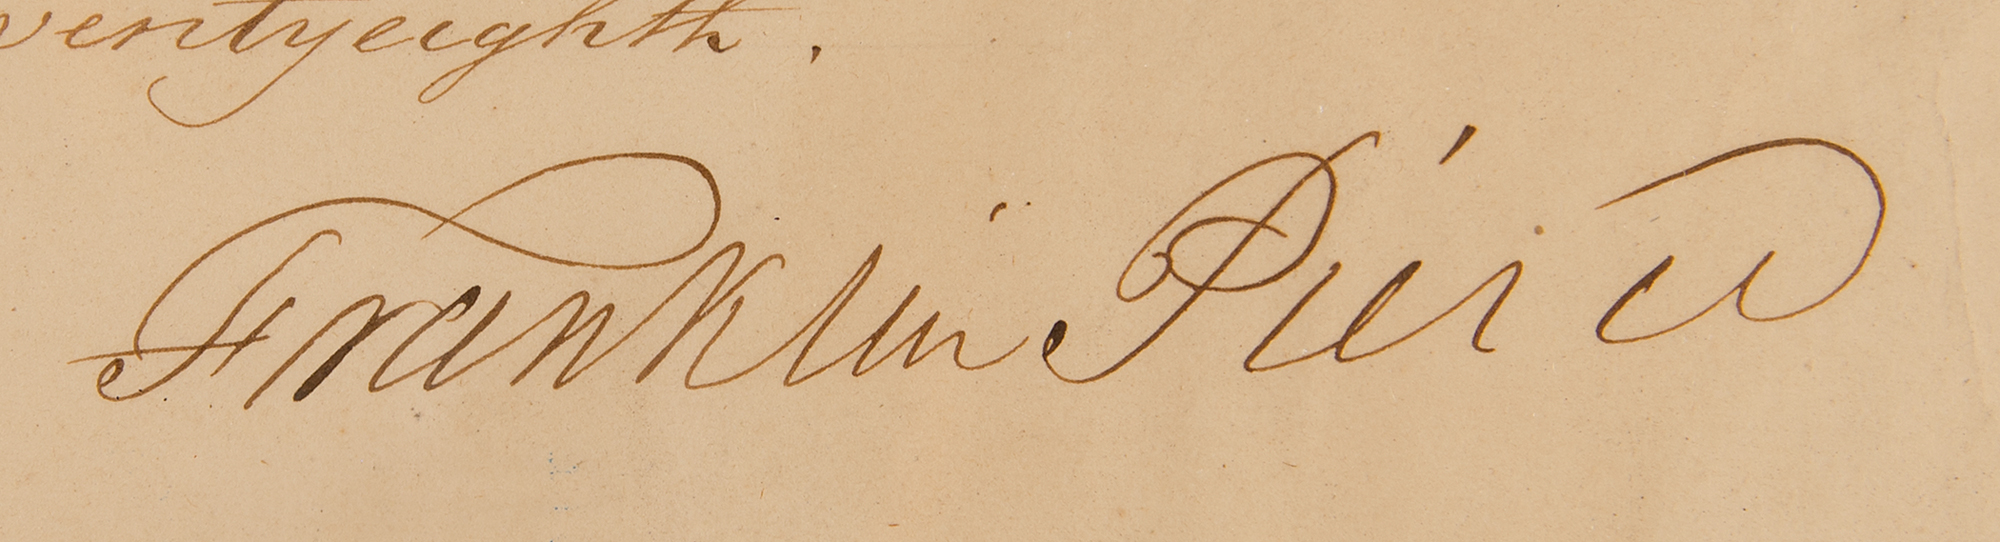 ventyeighth.
Franklin Pierce